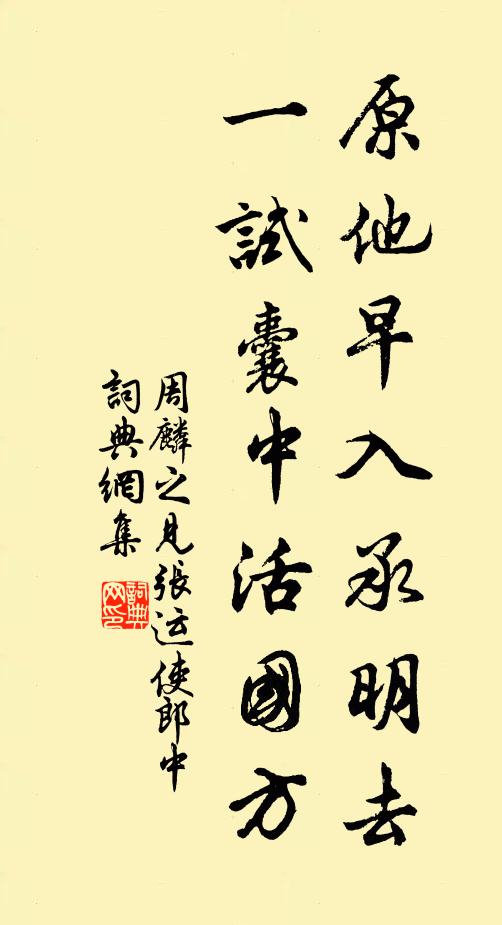 原他早入承明去
一試囊中活國方
周麟之見張运使郎中
詞典網集
詞典网印